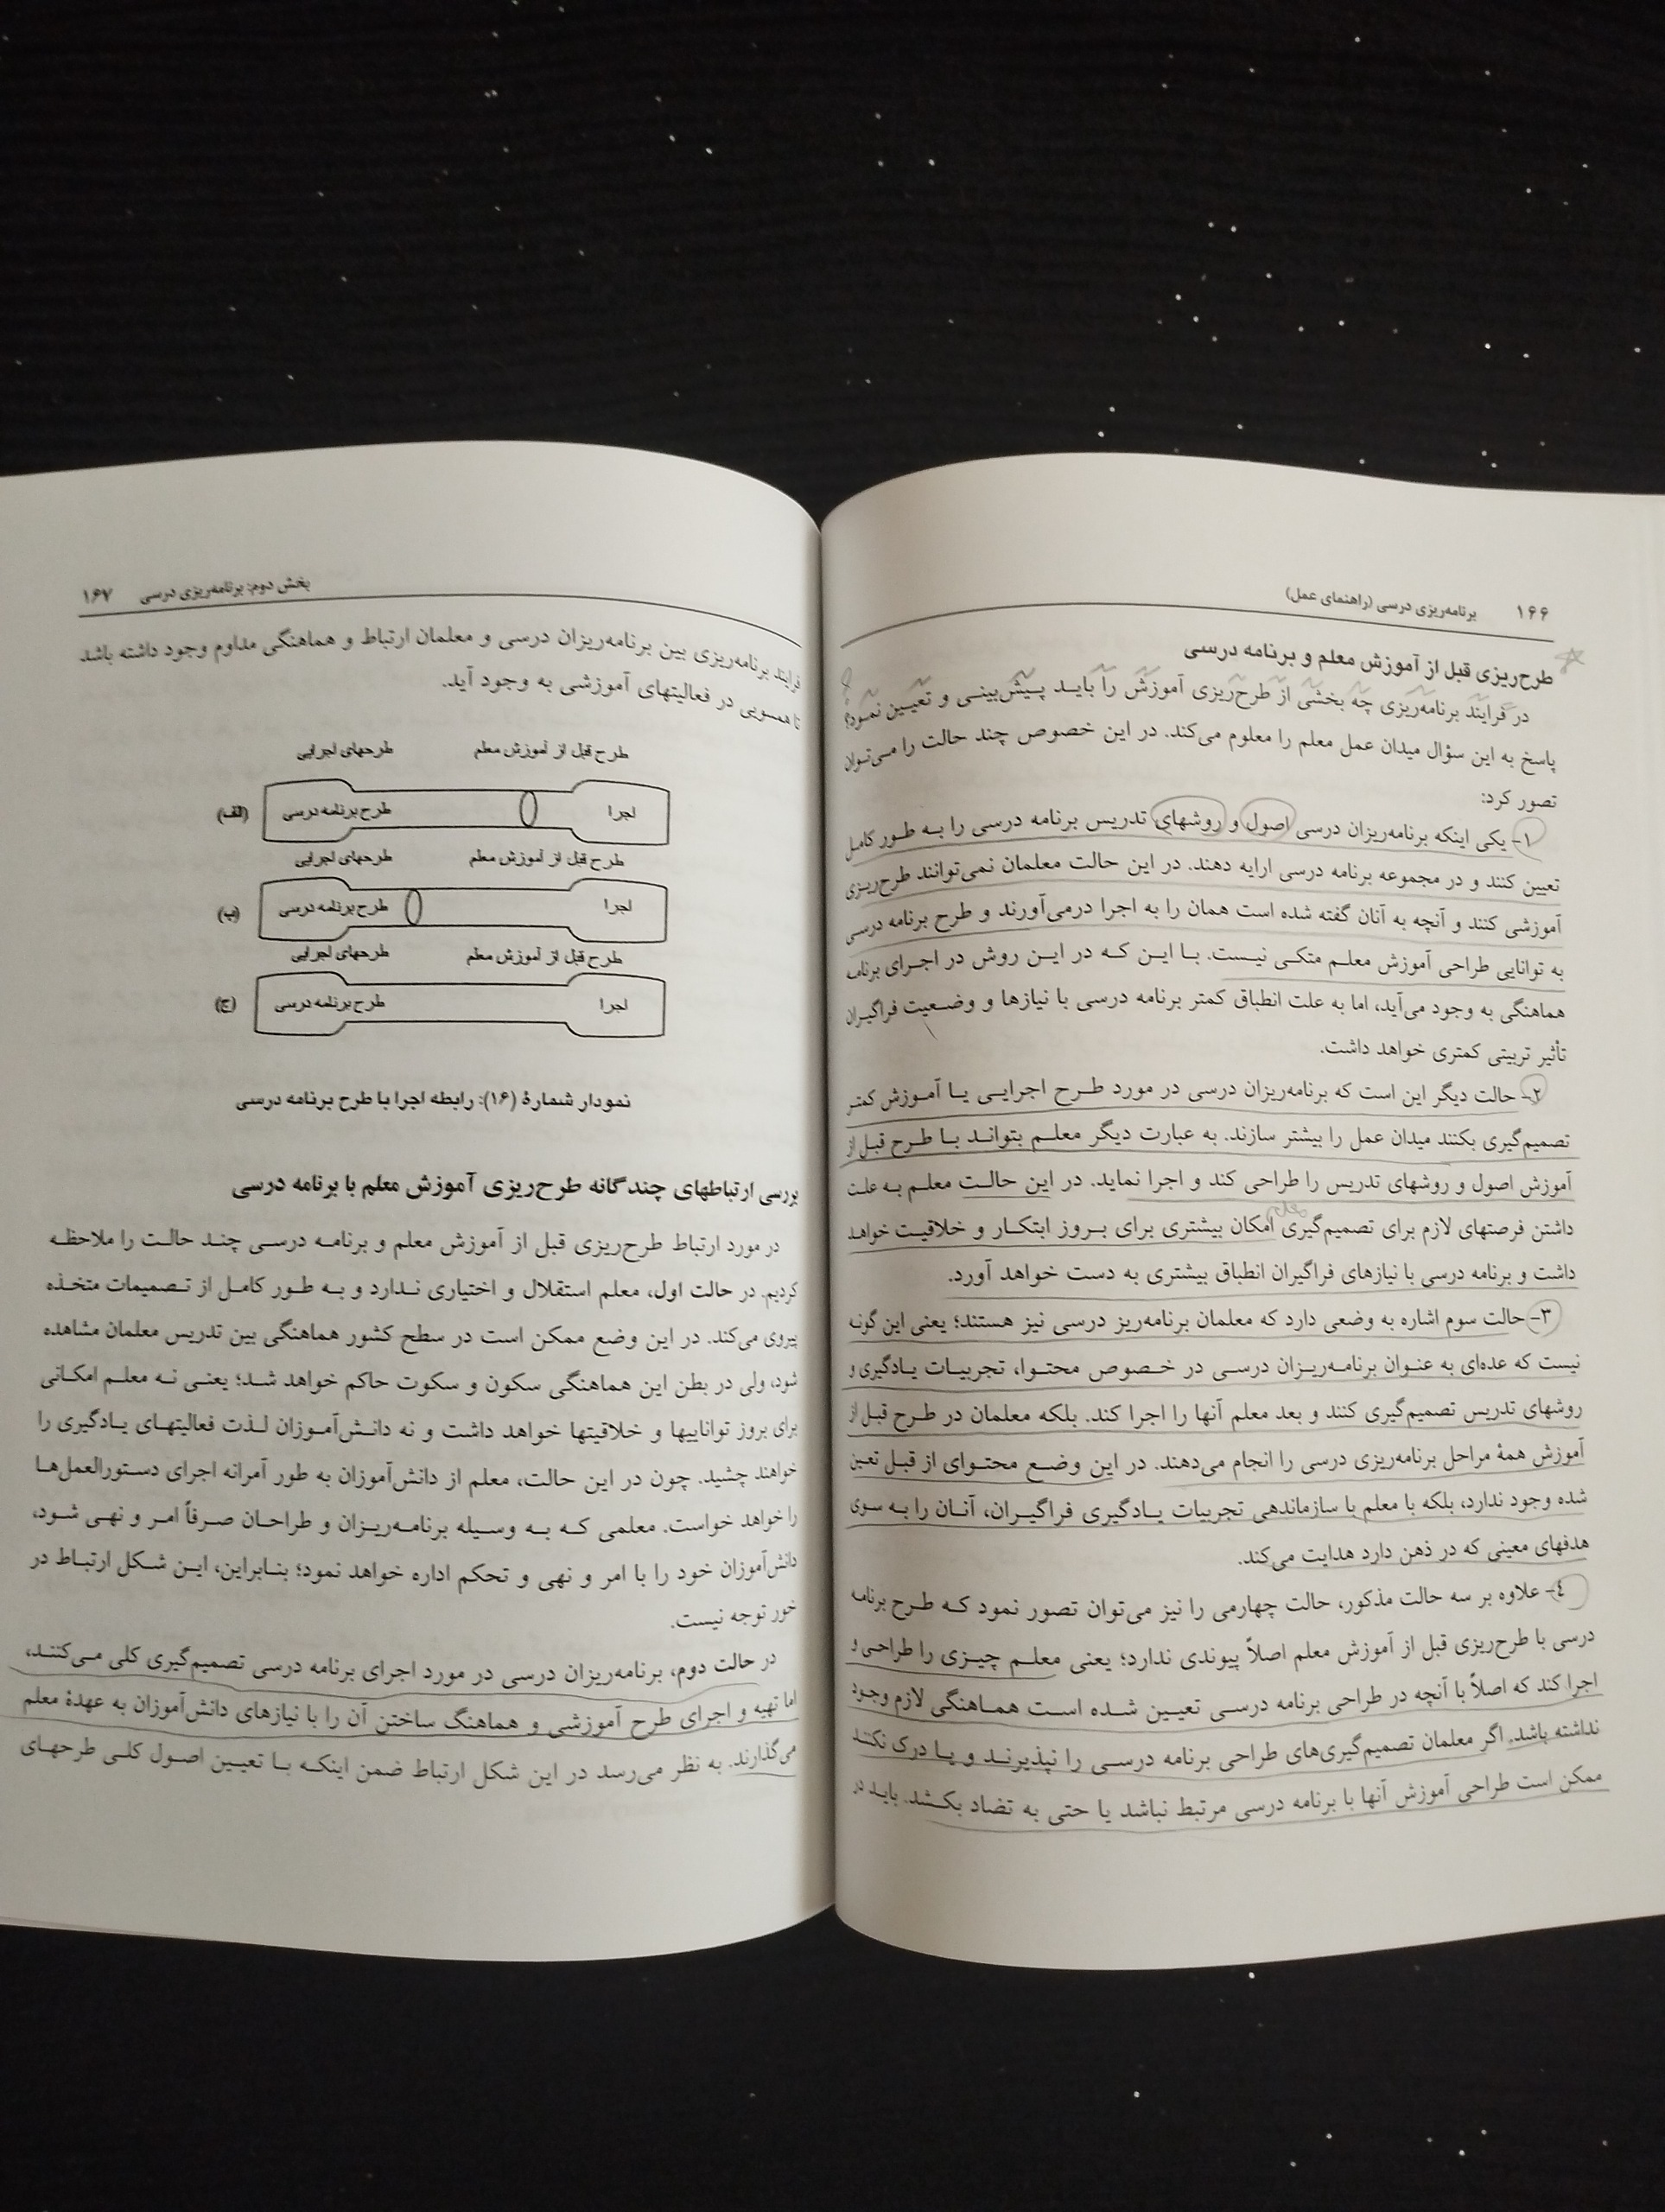 ۱۶۶ برنامه‌ریزی درسی (راهنمای عمل)
طرح‌ریزی قبل از آموزش معلم و برنامه درسی
در فرایند برنامه‌ریزی چه بخشی از طرح‌ریزی آموزش را بایـد پـیش‌بینـی و تعیـین نمـود؟
پاسخ به این سؤال میدان عمل معلم را معلوم می‌کند. در این خصوص چند حالت را مـی‌تـوان
تصور کرد:
۱- یکی اینکه برنامه‌ریزان درسی اصول و روشهای تدریس برنامه درسی را بـه طـور کامـل
تعیین کنند و در مجموعه برنامه درسی ارایه دهند. در این حالت معلمان نمی‌توانند طرح‌ریـزی
آموزشی کنند و آنچه به آنان گفته شده است همان را به اجرا درمی‌آورند و طرح برنامه درسی
به توانایی طراحی آموزش معلـم متکـی نیـست. بـا ایـن کـه در ایـن روش در اجـرای برنامه
هماهنگی به وجود می‌آید، اما به علت انطباق کمتر برنامه درسی با نیازها و وضـعیت فراگیـران
تأثیر تربیتی کمتری خواهد داشت.
۲- حالت دیگر این است که برنامه‌ریزان درسی در مورد طـرح اجرایـی یـا آمـوزش کمتـر
تصمیم‌گیری بکنند میدان عمل را بیشتر سازند. به عبارت دیگر معلـم بتوانـد بـا طـرح قبل از
آموزش اصول و روشهای تدریس را طراحی کند و اجرا نماید. در این حالـت معلـم بـه علـت
معلم
داشتن فرصتهای لازم برای تصمیم‌گیری امکان بیشتری برای بـروز ابتکـار و خلاقیـت خواهـد
داشت و برنامه درسی با نیازهای فراگیران انطباق بیشتری به دست خواهد آورد.
۳- حالت سوم اشاره به وضعی دارد که معلمان برنامه‌ریز درسی نیز هستند؛ یعنی این گونه
نیست که عده‌ای به عنـوان برنامـه‌ریـزان درسـی در خـصوص محتـوا، تجربیـات یـادگیری و
روشهای تدریس تصمیم‌گیری کنند و بعد معلم آنها را اجرا کند. بلکه معلمان در طـرح قبـل از
آموزش همۀ مراحل برنامه‌ریزی درسی را انجام می‌دهند. در این وضـع محتـوای از قبـل تعیین
شده وجود ندارد، بلکه با معلم با سازماندهی تجربیات یـادگیری فراگیـران، آنـان را بـه سـوی
هدفهای معینی که در ذهن دارد هدایت می‌کند.
٤- علاوه بر سه حالت مذکور، حالت چهارمی را نیز می‌توان تصور نمود کـه طـرح برنامه
درسی با طرح‌ریزی قبل از آموزش معلم اصلاً پیوندی ندارد؛ یعنی معلـم چیـزی را طراحـی و
اجرا کند که اصلاً با آنچه در طراحی برنامه درسـی تعیـین شـده اسـت هماـهنگی لازم وجـود
نداشته باشد. اگر معلمان تصمیم‌گیری‌های طراحی برنامه درسـی را نپذیرنـد و یـا درک نکننـد
ممکن است طراحی آموزش آنها با برنامه درسی مرتبط نباشد یا حتی به تضاد بکـشد. بایـد در
بخش دوم: برنامه‌ریزی درسی ۱۶۷
فرایند برنامه‌ریزی بین برنامه‌ریزان درسی و معلمان ارتباط و هماهنگی مداوم وجود داشته باشد
تا همسویی در فعالیتهای آموزشی به وجود آید.
طرح قبل از آموزش معلم طرحهای اجرایی
اجرا طرح برنامه درسی (الف)
طرح قبل از آموزش معلم طرحهای اجرایی
اجرا طرح برنامه درسی (ب)
طرح قبل از آموزش معلم طرحهای اجرایی
اجرا طرح برنامه درسی (ج)
نمودار شمارۀ (۱۶): رابطه اجرا با طرح برنامه درسی
بررسی ارتباطهای چندگانه طرح‌ریزی آموزش معلم با برنامه درسی
در مورد ارتباط طرح‌ریزی قبل از آموزش معلم و برنامـه درسـی چنـد حالـت را ملاحظـه
کردیم. در حالت اول، معلم استقلال و اختیاری نـدارد و بـه طـور کامـل از تـصمیمات متخـذه
پیروی می‌کند. در این وضع ممکن است در سطح کشور هماهنگی بین تدریس معلمان مشاهده
شود، ولی در بطن این هماهنگی سکون و سکوت حاکم خواهد شـد؛ یعنـی نـه معلـم امکـانی
برای بروز تواناییها و خلاقیتها خواهد داشت و نه دانـش‌آمـوزان لـذت فعالیتهـای یـادگیری را
خواهند چشید. چون در این حالت، معلم از دانش‌آموزان به طور آمرانه اجرای دسـتورالعمل‌هـا
را خواهد خواست. معلمی کـه بـه وسـیله برنامـه‌ریـزان و طراحـان صـرفاً امـر و نهـی شـود،
دانش‌آموزان خود را با امر و نهی و تحکم اداره خواهد نمود؛ بنـابراین، ایـن شـکل ارتبـاط در
خور توجه نیست.
در حالت دوم، برنامه‌ریزان درسی در مورد اجرای برنامه درسی تصمیم‌گیری کلی مـی‌کننـد،
اما تهیه و اجرای طرح آموزشی و هماهنگ ساختن آن را با نیازهای دانش‌آموزان به عهدۀ معلم
می‌گذارند. به نظر می‌رسد در این شکل ارتباط ضمن اینکـه بـا تعیـین اصـول کلـی طرحهـای